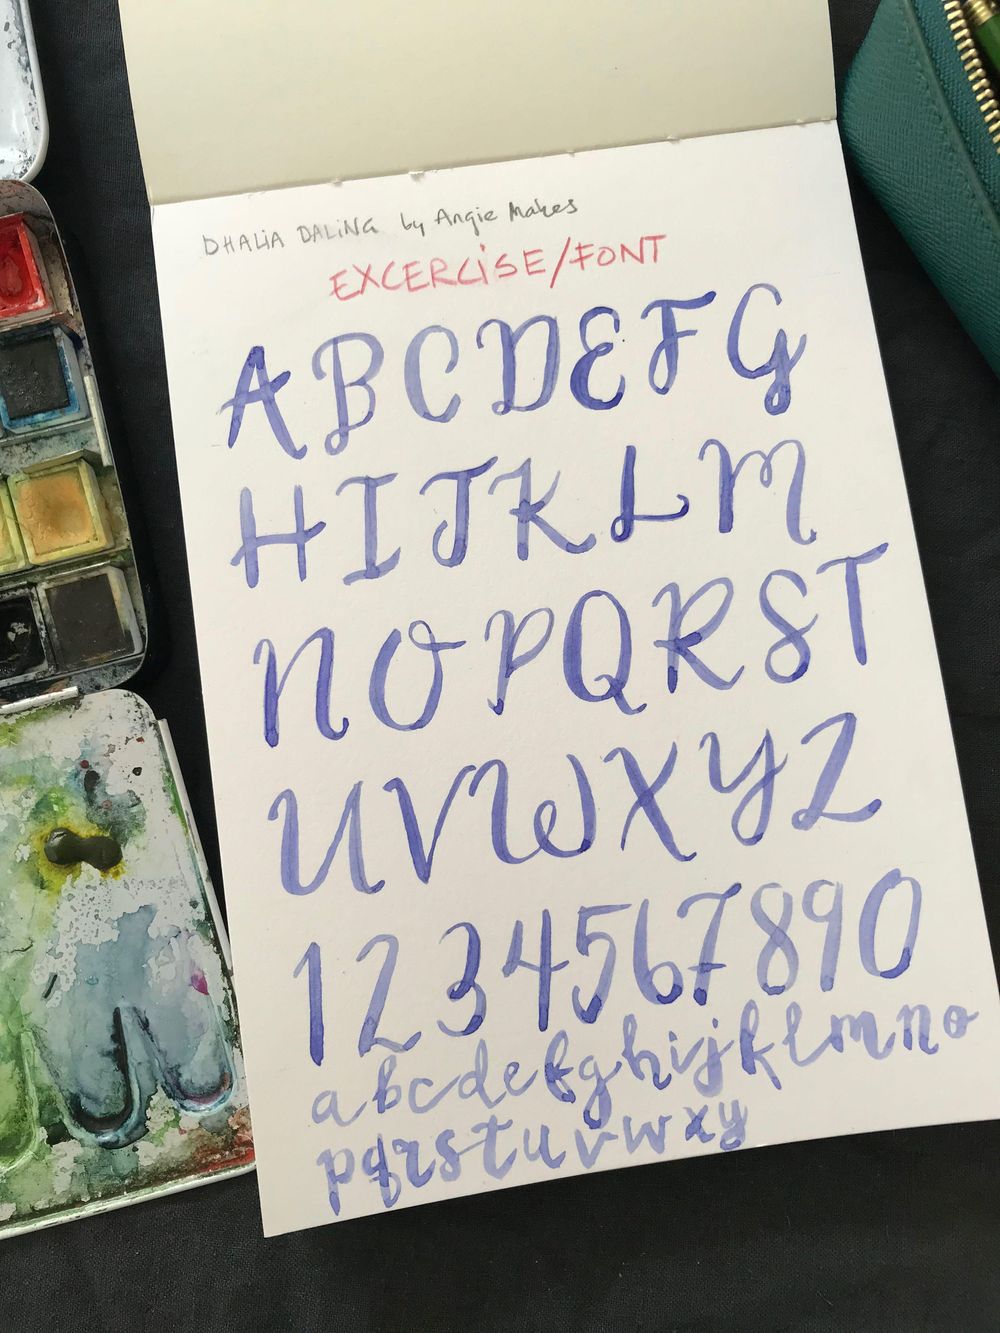 DHALIA DALING by Angie Makes
EXCERCISE/FONT
A B C D E F G
H I J K L M
N O P Q R S T
U V W X Y Z
1 2 3 4 5 6 7 8 9 0
a b c d e f g h i j k l m n o
p q r s t u v w x y